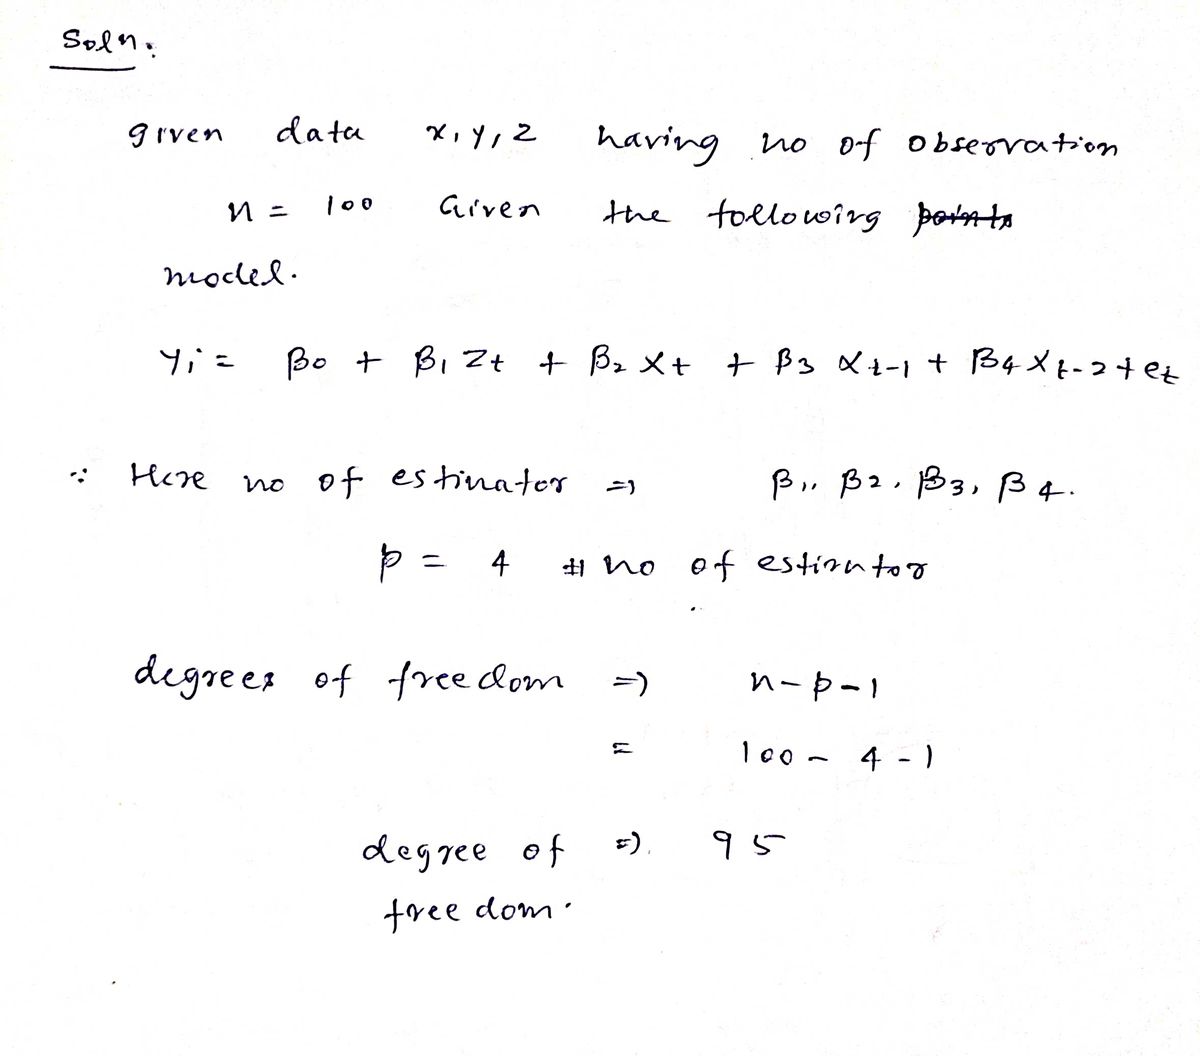 Soln.
given data x, y, z having no of observation
n = 100 Given the following points
model.
Yi = β0 + β1 Zt + β2 Xt + β3 Xt-1 + β4 Xt-2 + et
∵ Here no of estinator ⇒ β1, β2, β3, β4.
p = 4 # no of estirator
degrees of freedom ⇒ n-p-1
= 100 - 4 - 1
degree of ⇒ 95
freedom.